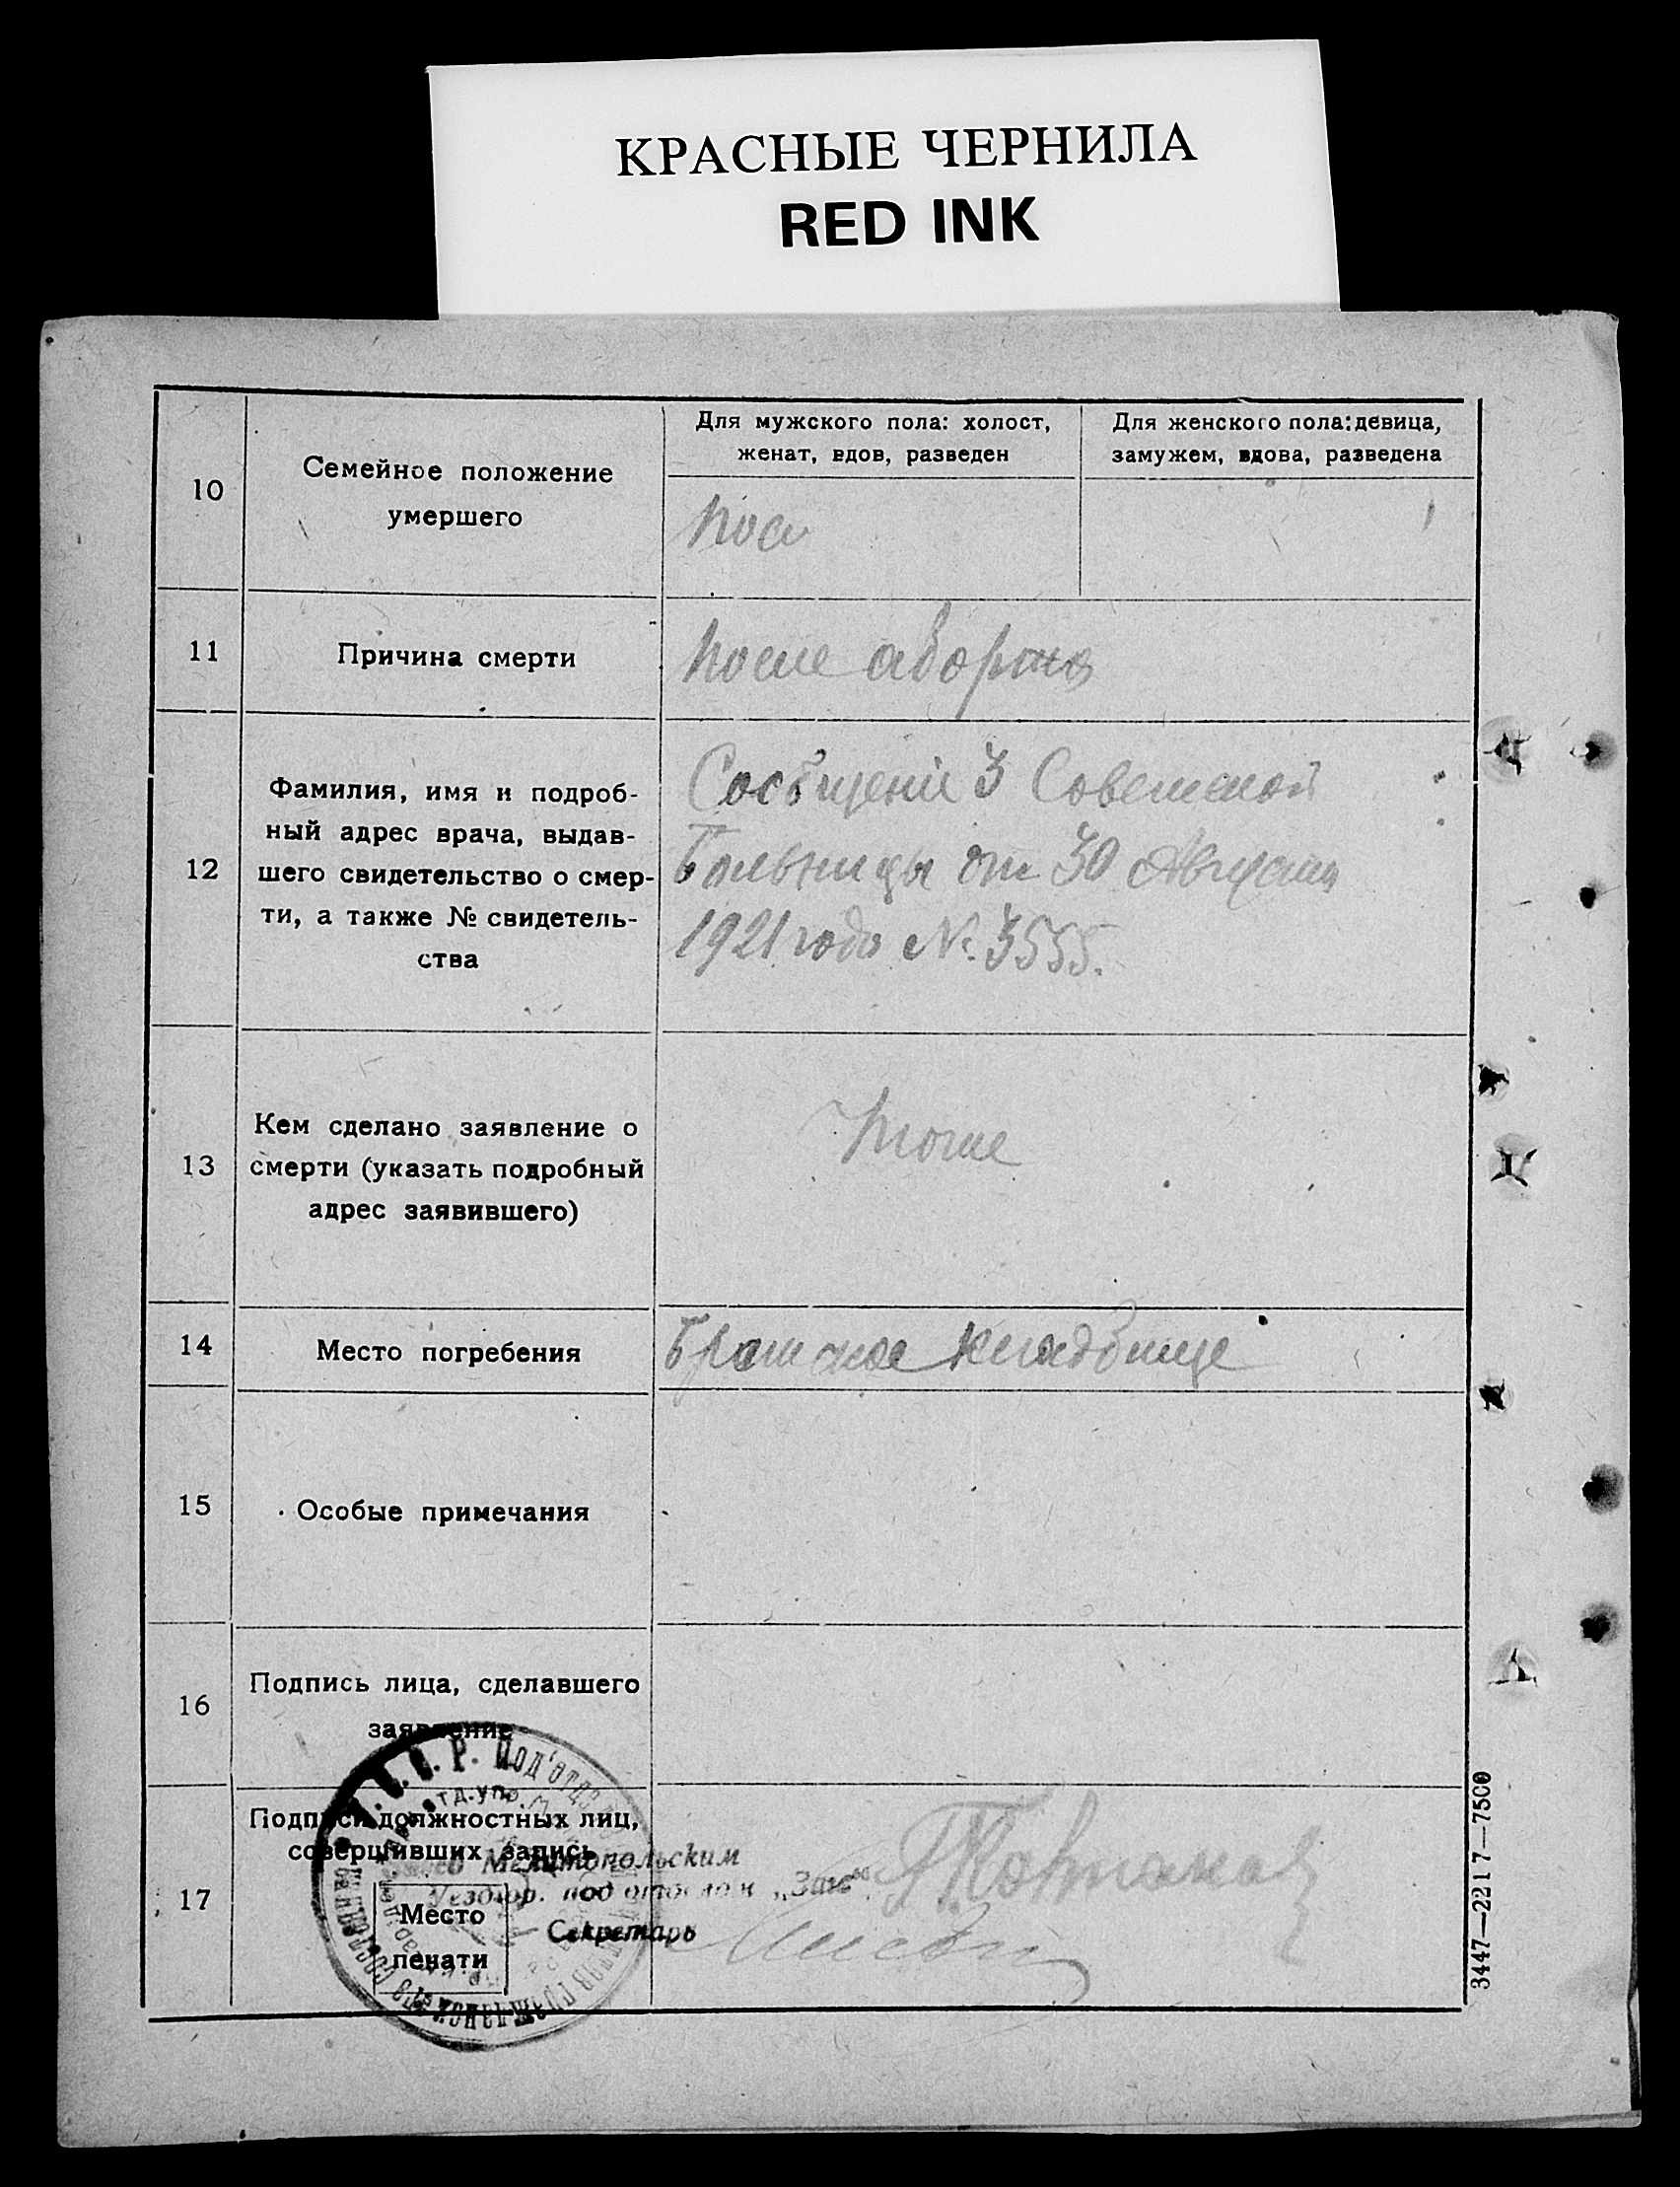 КРАСНЫЕ ЧЕРНИЛА
RED INK
10
Семейное положение
умершего
Для мужского пола: холост,
женат, вдов, разведен
Для женского пола: девица,
замужем, вдова, разведена
Посл
11
Причина смерти
После аборта
12
Фамилия, имя и подроб-
ный адрес врача, выдав-
шего свидетельство о смер-
ти, а также № свидетель-
ства
Сообщение 3 Советской
Больницы от 30 Августа
1921 года №. 3555.
13
Кем сделано заявление о
смерти (указать подробный
адрес заявившего)
тоже
14
Место погребения
Братское кладбище
15
Особые примечания
16
Подпись лица, сделавшего
заявление
17
Подписи должностных лиц,
совершивших запись
Мелитопольским
под'отделом „Загс“
Секретарь
Место
печати
3447—2217—7500